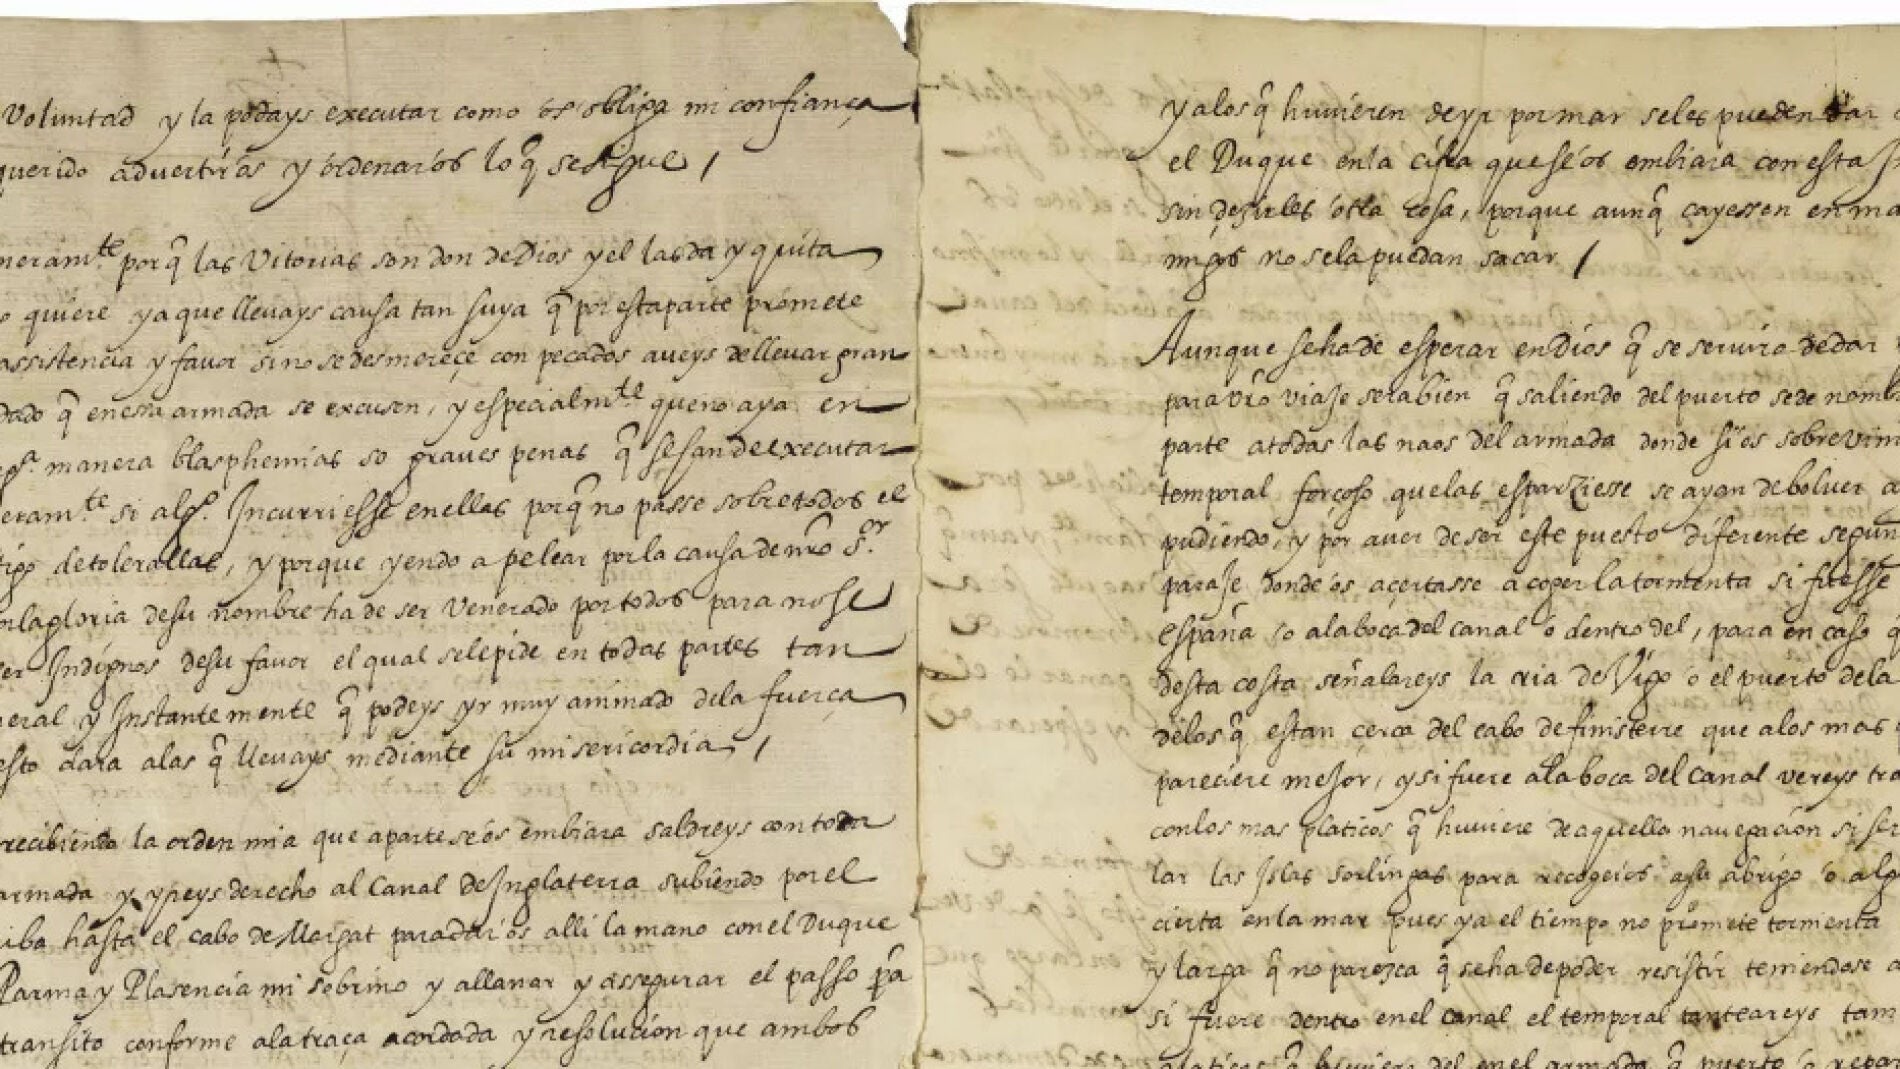 Voluntad y la podays executar como os obliga mi confiança
querido advertiros y ordenaros lo q̃ se sigue /
neramte por q̃ las Vitorias son don de Dios y el las da y quita
quiere ya que llevays causa tan suya q̃ por esta parte promete
assistencia y favor si no se desmereçe con pecados aveys de llevar gran
dado q̃ en essa armada se excusen, y especialmte que no aya en
manera blasphemias so graves penas q̃ se han de executar
eramte si algo. Incurriesse en ellas porq̃ no passe sobre todos el
tigo de tolerallas, y porque yendo a pelear por la causa de nr̃o s.or
la gloria de su nombre ha de ser Venerado por todos para no se
er Indignos de su favor el qual se le pide en todas partes tan
neral y Instantemente q̃ podeys yr muy animado de la fuerça
esto dara a las q̃ llevays mediante su misericordia /
recibiendo la orden mia que a parte se os embiara saldreys con toda
armada y yreys derecho al Canal de Inglaterra subiendo por el
iba hasta el cabo de Margat para daros alli la mano con el Duque
Parma y Plasencia mi sobrino y allanar y assegurar el passo pa
transito conforme a la traça acordada y resolucion que ambos
y a los q̃ huvieren de yr por mar se les pueden dar
el Duque en la cifra que se os embiara con esta
sin dezirles otra cosa, porque aunq̃ cayessen en ma
migos no se la puedan sacar /
Aunque se ha de esperar en Dios q̃ se servira de dar
para vr̃o viaje sera bien q̃ saliendo del puerto se de nomb
parte a todas las naos del armada donde si os sobrevini
temporal forçoso que las esparziesse se ayan de bolver a
pudiendo, y por aver de ser este puesto diferente segun
paraje donde os açertasse a coger la tormenta si fuesse
españa so a la boca del canal o dentro del, para en caso q
desta costa señalareys la ria de Vigo o el puerto de la
de los q̃ estan çerca del cabo de finisterre que a los mas
pareciere mejor, y si fuere a la boca del Canal vereys tra
con los mas platicos q̃ huviere de aquella navegacion si ser
lar las Islas sorlingas para recogeros a su abrigo o alg
cierta en la mar pues ya el tiempo no promete tormenta
y larga q̃ no parezca q̃ se ha de poder resistir teniendose a
si fuere dentro en el canal el temporal tanteareys tam
platicos q̃ huviere del en el armada q̃ puerto o repar